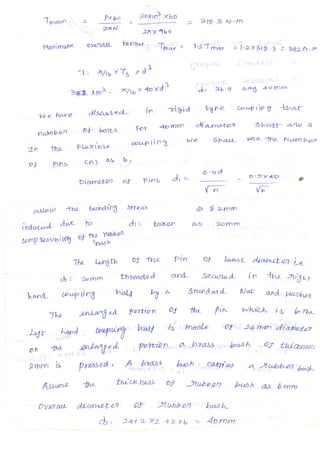 Tmean = Px60 / 2πN = 30x10³ x60 / 2πx960 = 318.3 N-m
Maximum overall torque Tmax = 1.2Tmax = 1.2x318.3 = 382 N-m
T = π/16 x Ts x d³
382 x10³ = π/16 x 40xd³ d= 36.5 say 40mm
We have discussed in rigid type coupling that
number of bolts For 40mm diameter shaft are 4
In the Flexible coupling we shall use the Number
of Pins (n) as 6,
Diameter of Pins d₁ = 0.5d / √n = 0.5x40 / √6
allow the bending stress = 8.2mm
induced due to d₁ = taken as 20mm
compressibility of the rubber bush
The Length of the Pin of least diameter i.e
d₁ = 20mm threaded and secured in the right
hand coupling half by a Standard Nut and Washer
The enlarged portion of the Pin which is in the
Left hand coupling half is made of 24mm diameter
on the enlarged portion, a brass bush of thickness
2mm is pressed. A brass bush carries a rubber bush
Assume the thickness of rubber bush as 6mm
Overall diameter of rubber bush
d₃ = 24+2x2 +2x6 = 40mm